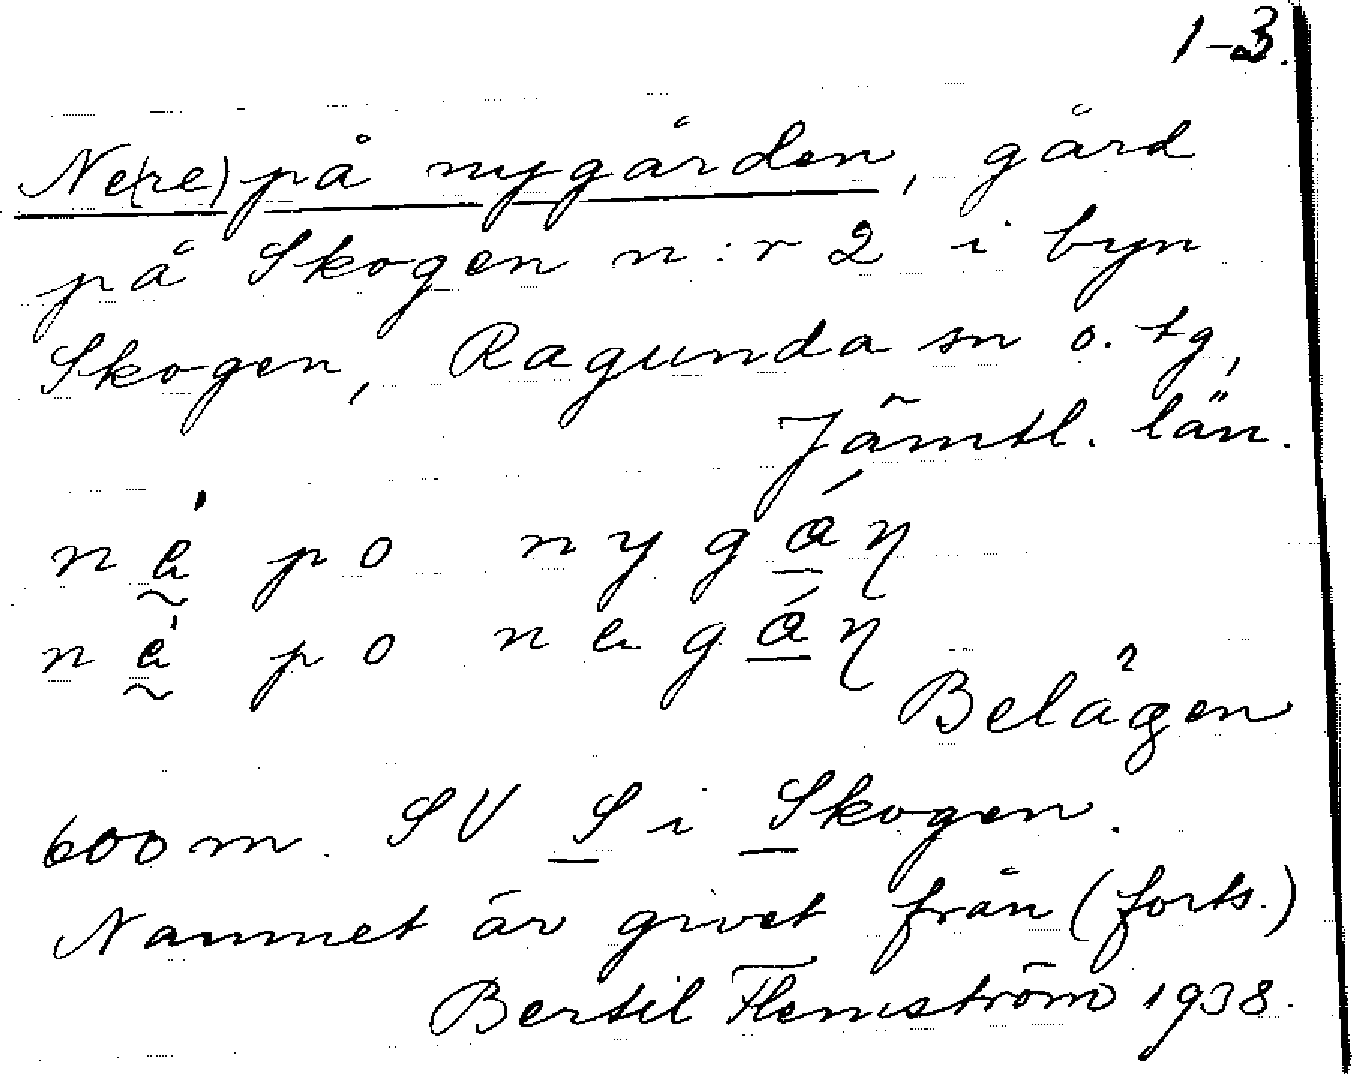 1-3.
Ne(re) på nygården, gård
på Skogen n:r 2 i byn
Skogen, Ragunda sn o. tg,
Jämtl. län.
po
po
Belägen
600 m. SV S i Skogen.
Namnet är givet från (forts.)
Bertil Flemström 1938.